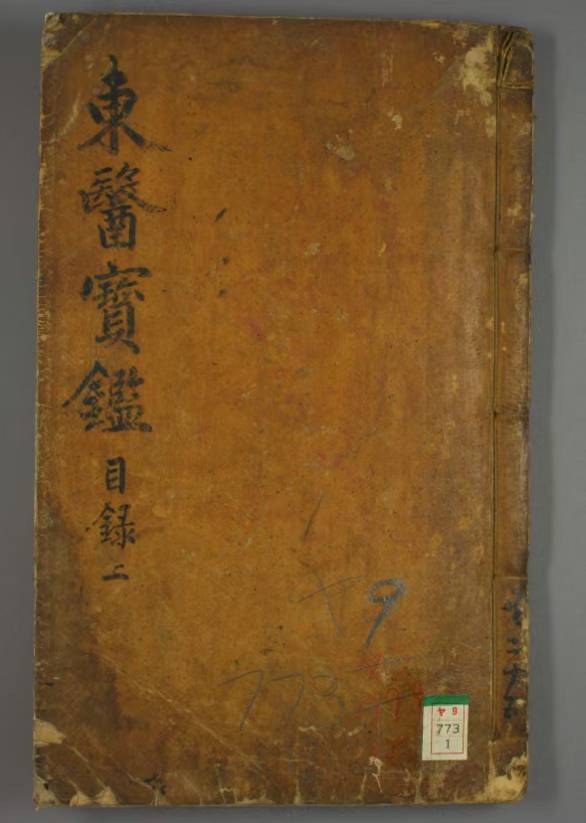 東醫寶鑑
目録 上
ヤ9
773
ヤ 9
773
1